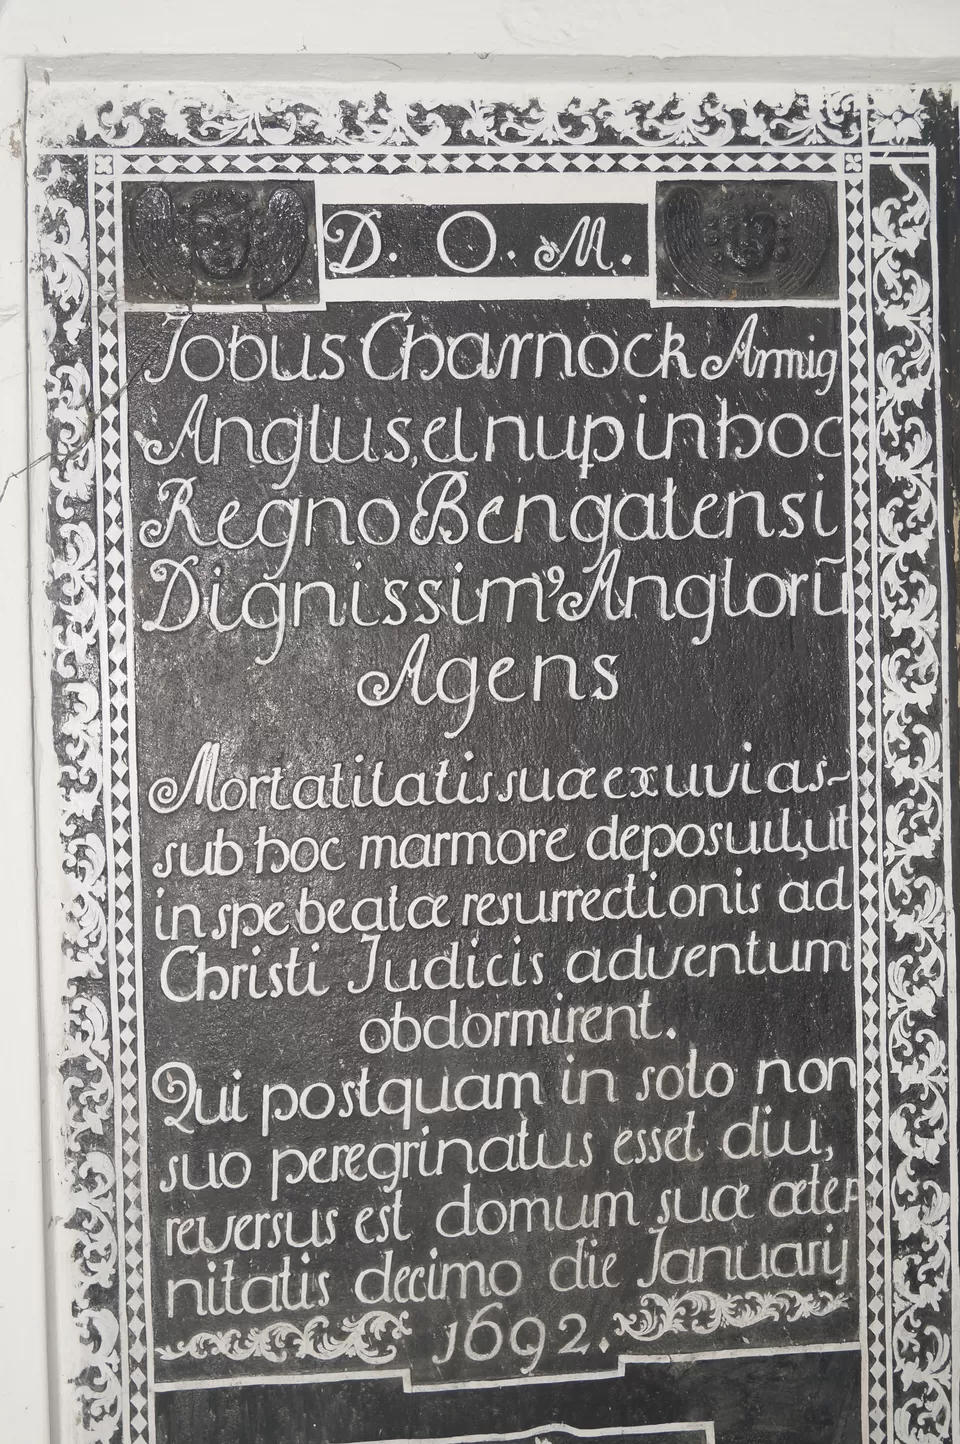 D. O. M.
Jobus Charnock Armig
Anglus, et nup in hoc
Regno Bengalensi
Dignissim9 Anglorũ
Agens
Mortalitatis suæ exuvias~
sub hoc marmore deposuit, ut
in spe beatæ resurrectionis ad
Christi Judicis adventum
obdormirent.
Qui postquam in solo non
suo peregrinatus esset diu,
reversus est domum suæ æter
nitatis decimo die Januarij
1692.